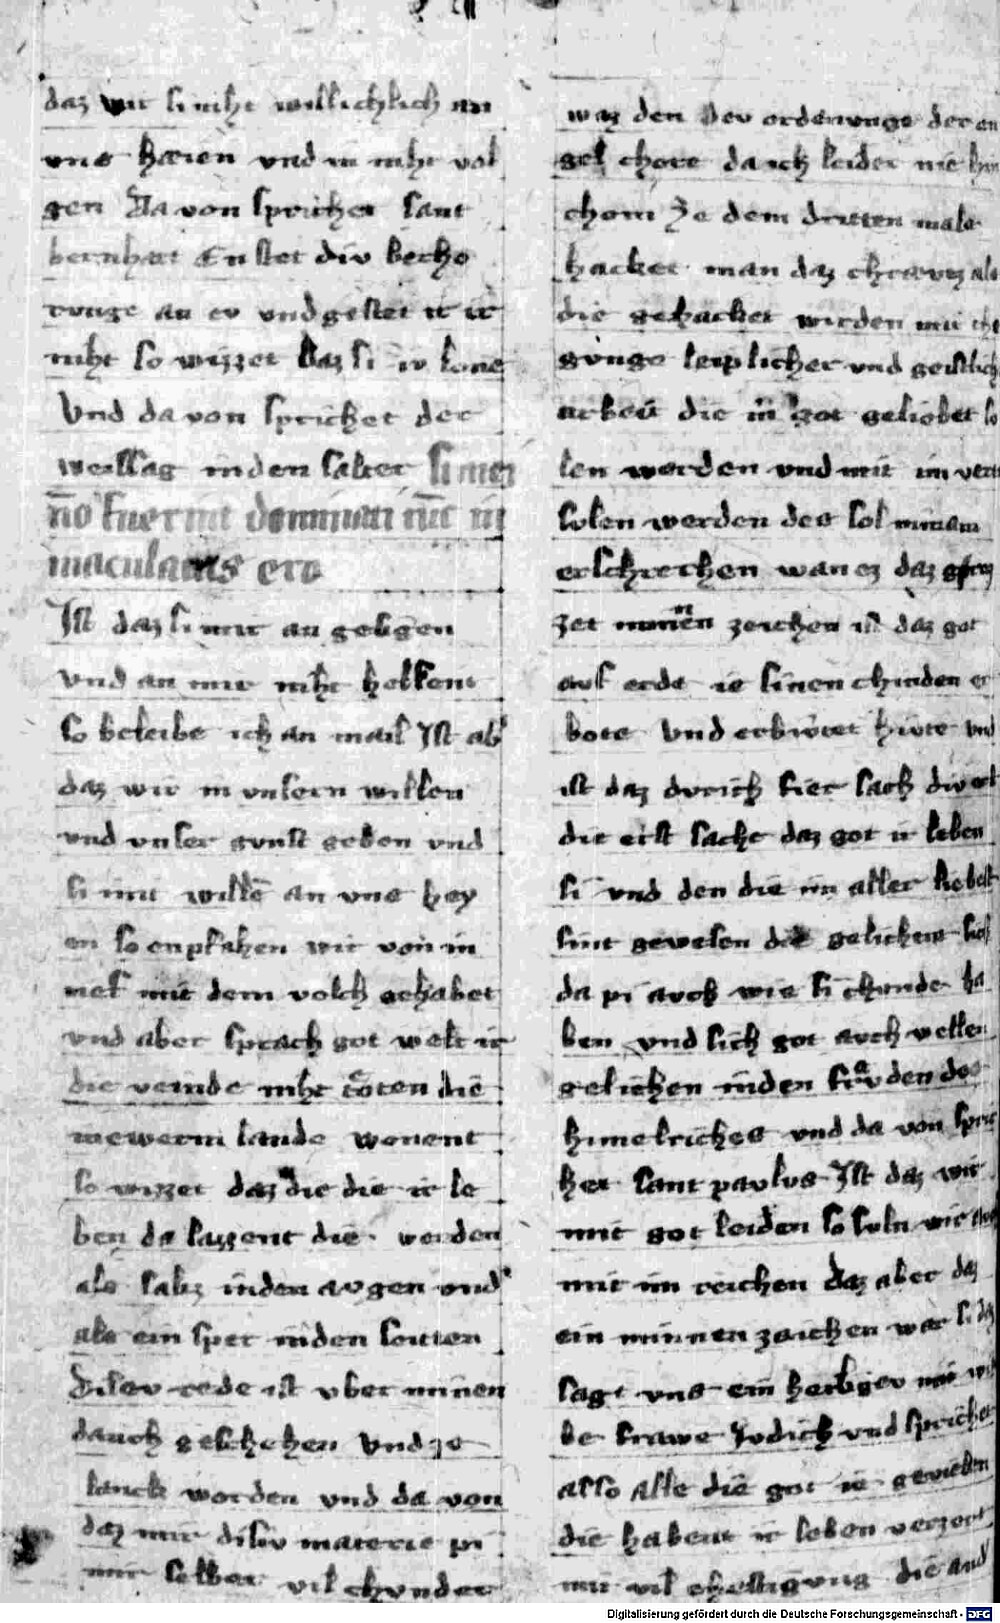 daz wir si niht willichlich an
uns haien und in niht vol
gen Da von sprichet sant
bernhart Enstet div becho
runge an ev und gestet ir ir
niht so wizzet daz si iv lone
Und da von sprichet der
weissag inden salter Si mei
nō fuerint dominati tūc in
maculatus ero
Ist daz si mir an geligen
und an mir niht helfent
so beleibe ich an mail Ist ab
daz wir in unsern willen
und unser gunst geben und
si mit willē an uns hey
en so enpfahen wir von in
mit dem volch gehabet
und aber sprach got welt ir
die veinde niht toten die
in ewerm lande wonent
so wizzet daz die die ir le
ben da lazzent die werden
als salz inden augen und
als ein sper inden seitten
Disev rede ist uber minen
danch geschehen Und ze
lanck worden und da von
daz mir disiv materie pi
mir selber vil chunder
waz den dev ordenunge der en
gel chore da ich leider nie hin
chom Ze dem dritten male
hacket man daz chrawz als
die gehacket werden mit che
gunge leiplicher und geistlich
arbeit die in got geliebet so
len werden und mit im vere
solen werden des sol niman
erschrechen wan ez daz groz
zet minnen zeichen ist daz got
auf erde ie sinen chinden er
bote Und erbivtet hivte und
ist daz durich fier sach div
die erst sache daz got ir leben
si und den die im aller liebest
sint gewesen die gelichent sich
da pi auch wie si chunde ha
ben und sich got auch vellen
gelichen inden frauden des
himelriches und da von spri
het sant paulus Ist daz wir
mit got leiden so suln wir
mit im reichen daz aber daz
ein minnen zaichen war si daz
sagt uns ein heiligev
be frawe Judich und sprichet
also alle die got ie gevielen
die habent ir leben verzert
mit vil chestigung die and